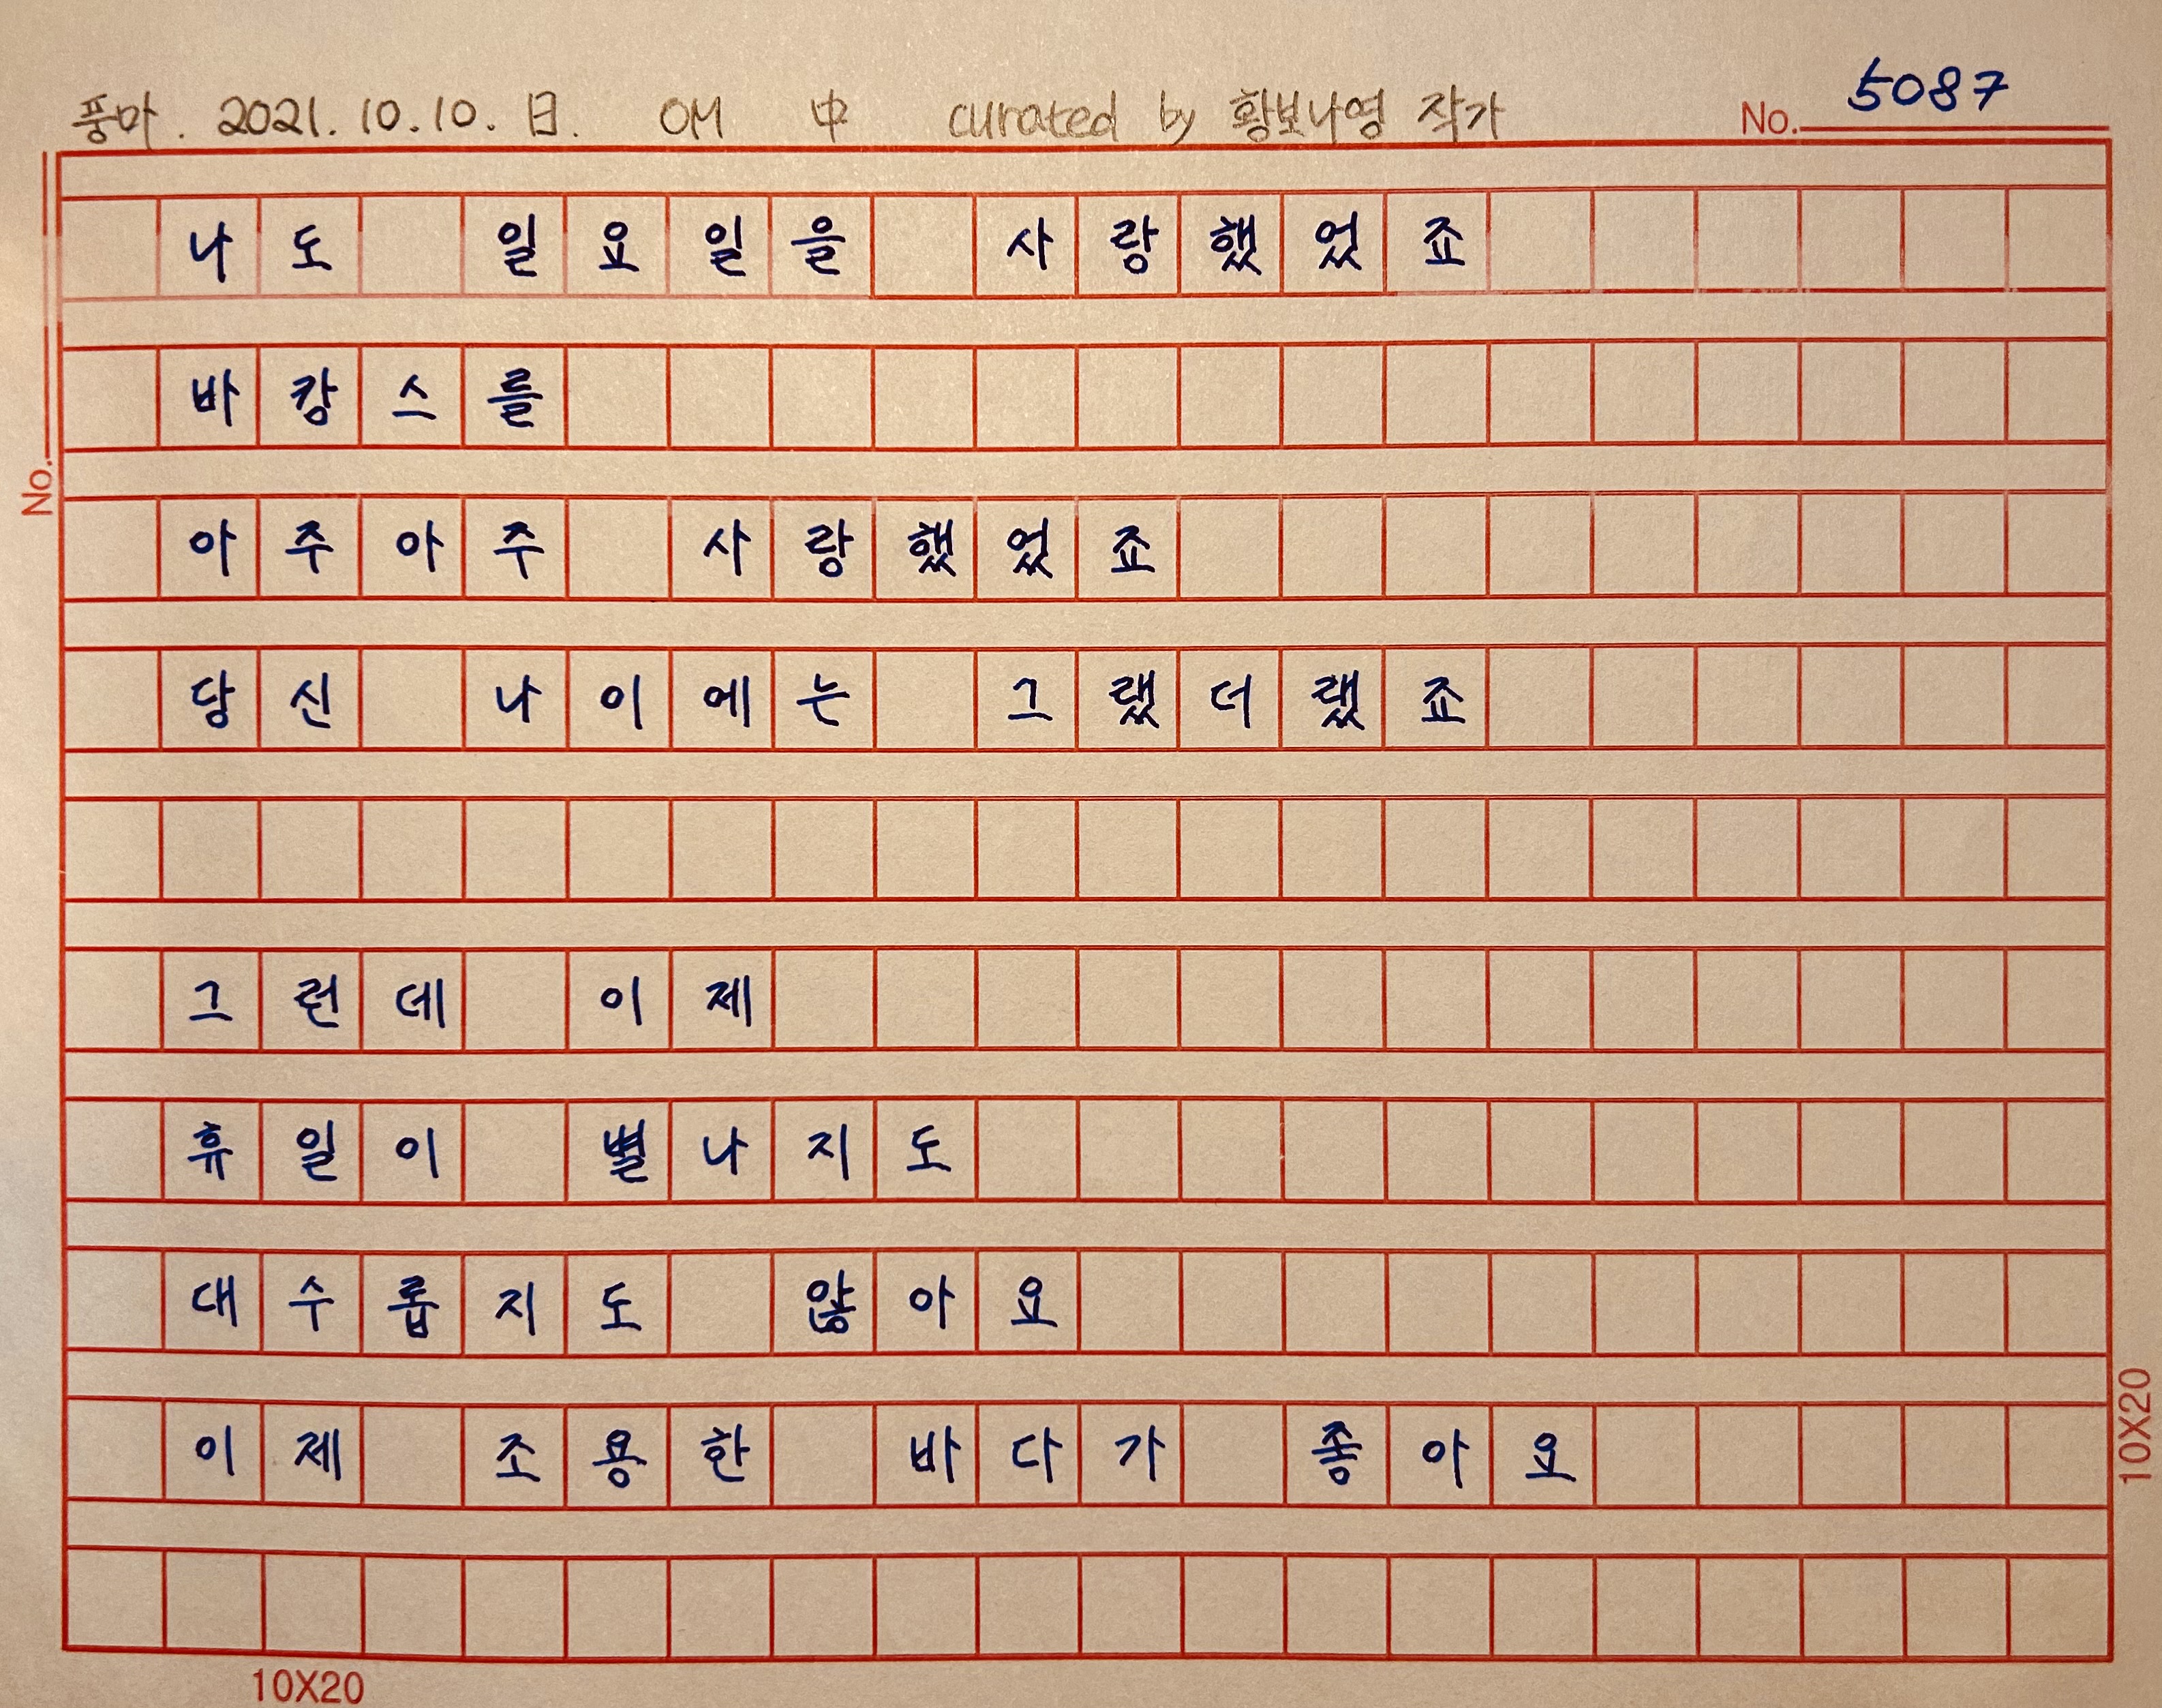 풍마. 2021. 10. 10. 日. OM 中 curated by 황보나영 작가
No. 5087
나도 일요일을 사랑했었죠
바캉스를
아주아주 사랑했었죠
당신 나이에는 그랬더랬죠
그런데 이제
휴일이 별나지도
대수롭지도 않아요
이제 조용한 바다가 좋아요
No.
10X20
10X20